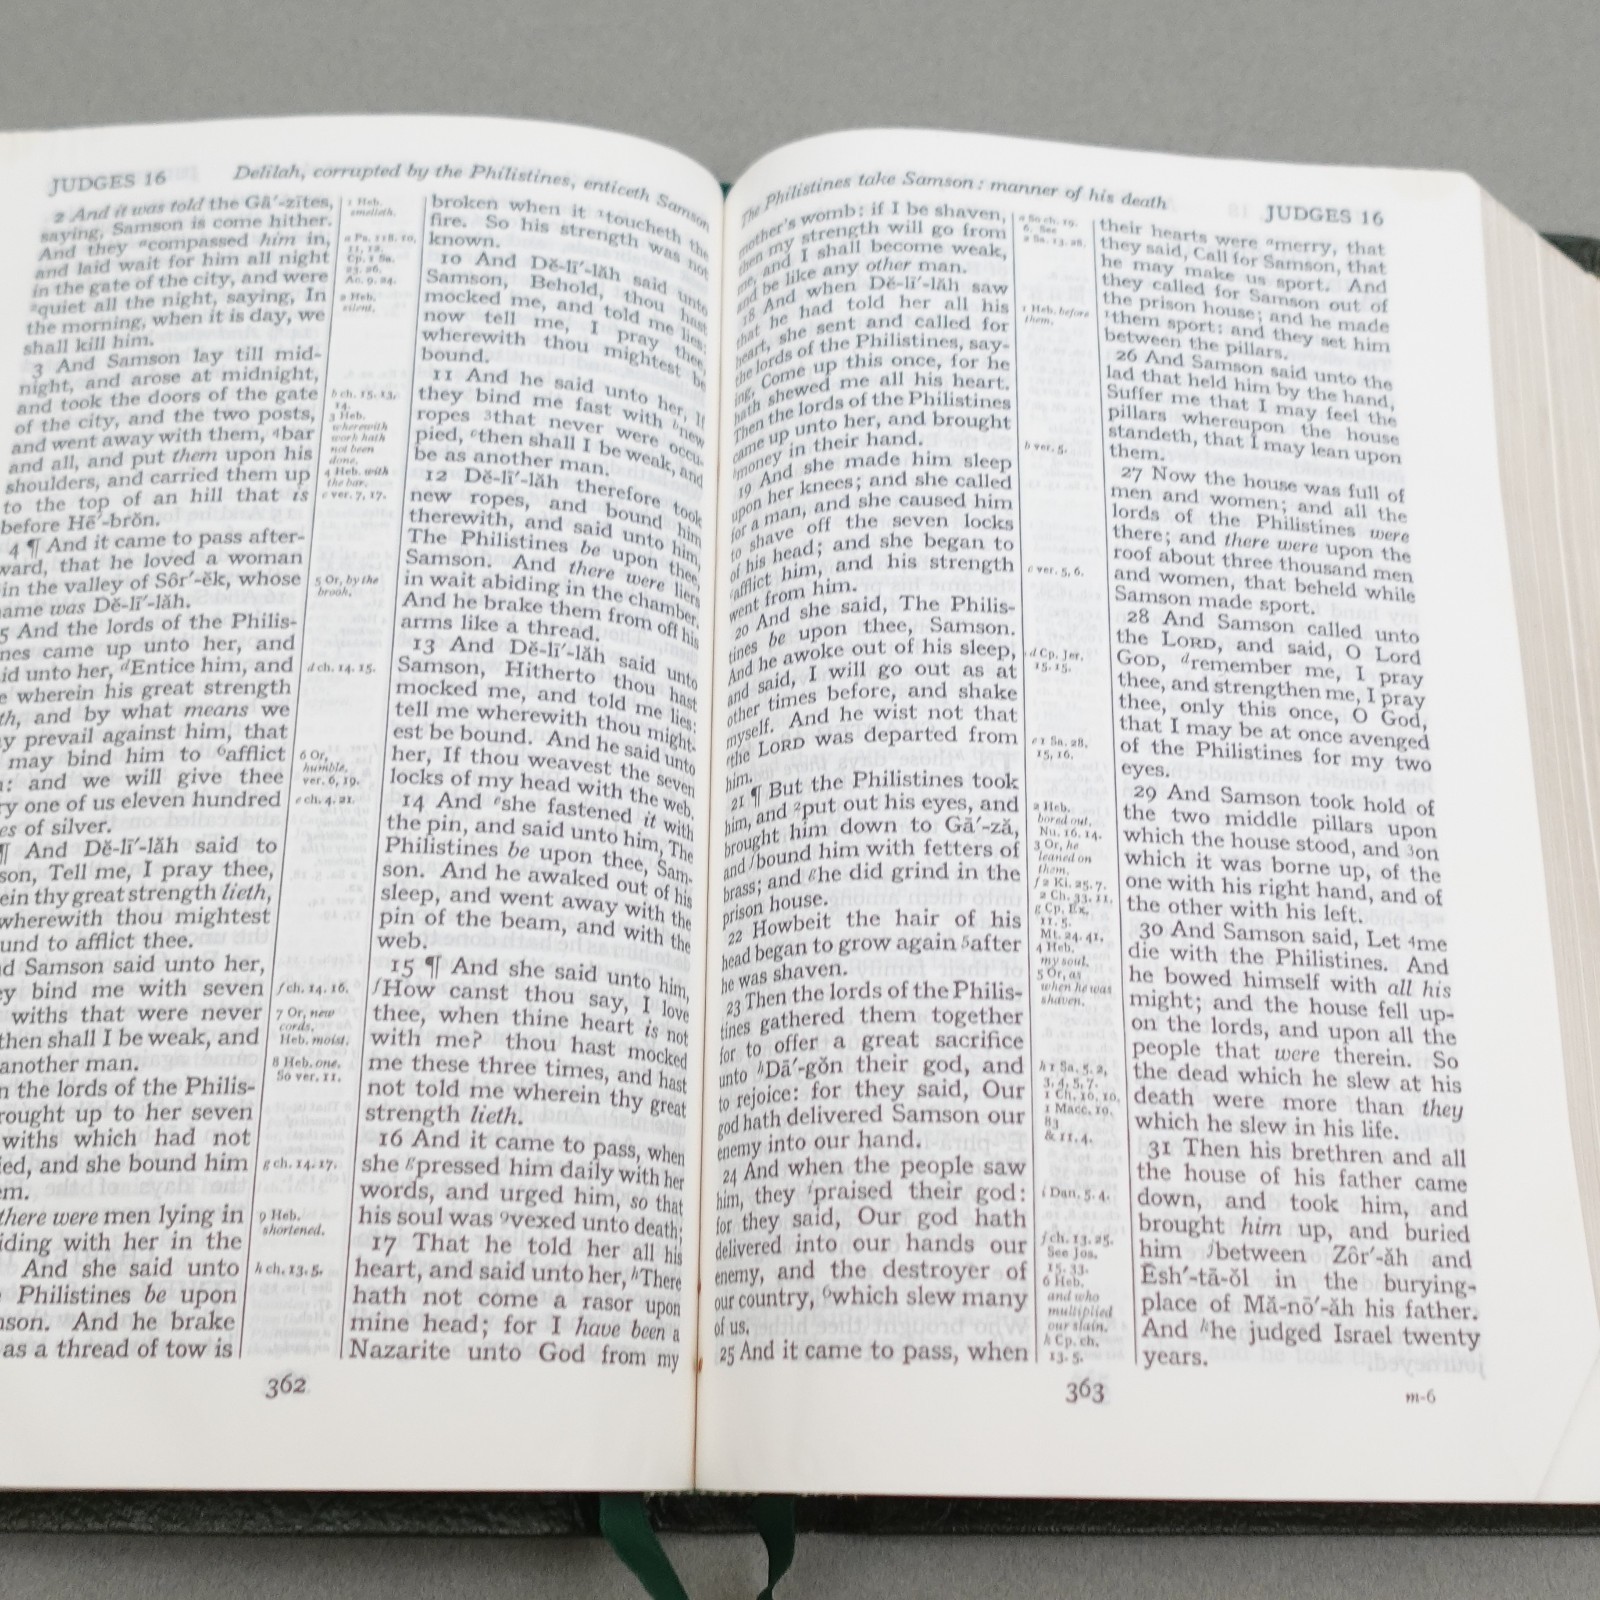 JUDGES 16
Delilah, corrupted by the Philistines, enticeth Samson
2 And it was told the Gā′-zītes,
saying, Samson is come hither.
And they ᵃcompassed him in,
and laid wait for him all night
in the gate of the city, and were
²quiet all the night, saying, In
the morning, when it is day, we
shall kill him.
3 And Samson lay till mid-
night, and arose at midnight,
and took the doors of the gate
of the city, and the two posts,
and went away with them, ⁴bar
and all, and put them upon his
shoulders, and carried them up
to the top of an hill that is
before Hē′-brŏn.
4 ¶ And it came to pass after-
ward, that he loved a woman
in the valley of Sôr′-ĕk, whose
name was Dĕ-lī′-lăh.
5 And the lords of the Philis-
nes came up unto her, and
id unto her, ᵈEntice him, and
e wherein his great strength
th, and by what means we
y prevail against him, that
may bind him to ⁶afflict
: and we will give thee
ry one of us eleven hundred
es of silver.
¶ And Dĕ-lī′-lăh said to
son, Tell me, I pray thee,
ein thy great strength lieth,
wherewith thou mightest
und to afflict thee.
d Samson said unto her,
ey bind me with seven
withs that were never
then shall I be weak, and
another man.
n the lords of the Philis-
rought up to her seven
withs which had not
ied, and she bound him
em.
there were men lying in
iding with her in the
And she said unto
Philistines be upon
son. And he brake
as a thread of tow is
1 Heb.
smelleth.
a Ps. 118. 10,
11, 12.
Cp. 1 Sa.
23. 26.
Ac. 9. 24.
2 Heb.
silent.
b ch. 15. 13,
14.
3 Heb.
wherewith
work hath
not been
done.
4 Heb. with
the bar.
c ver. 7, 17.
5 Or, by the
brook.
d ch. 14. 15.
6 Or,
humble.
ver. 6, 19.
e ch. 4. 21.
f ch. 14. 16.
7 Or, new
cords.
Heb. moist.
8 Heb. one.
So ver. 11.
g ch. 14. 17.
9 Heb.
shortened.
h ch. 13. 5.
broken when it ¹toucheth the
fire. So his strength was not
known.
10 And Dĕ-lī′-lăh said unto
Samson, Behold, thou hast
mocked me, and told me lies:
now tell me, I pray thee,
wherewith thou mightest be
bound.
11 And he said unto her, If
they bind me fast with ᵇnew
ropes ³that never were occu-
pied, ᶜthen shall I be weak, and
be as another man.
12 Dĕ-lī′-lăh therefore took
new ropes, and bound him
therewith, and said unto him,
The Philistines be upon thee,
Samson. And there were liers
in wait abiding in the chamber.
And he brake them from off his
arms like a thread.
13 And Dĕ-lī′-lăh said unto
Samson, Hitherto thou hast
mocked me, and told me lies:
tell me wherewith thou might-
est be bound. And he said unto
her, If thou weavest the seven
locks of my head with the web.
14 And ᵉshe fastened it with
the pin, and said unto him, The
Philistines be upon thee, Sam-
son. And he awaked out of his
sleep, and went away with the
pin of the beam, and with the
web.
15 ¶ And she said unto him,
ᶠHow canst thou say, I love
thee, when thine heart is not
with me? thou hast mocked
me these three times, and hast
not told me wherein thy great
strength lieth.
16 And it came to pass, when
she ᵍpressed him daily with her
words, and urged him, so that
his soul was ⁹vexed unto death;
17 That he told her all his
heart, and said unto her, ʰThere
hath not come a rasor upon
mine head; for I have been a
Nazarite unto God from my
362
The Philistines take Samson: manner of his death
JUDGES 16
mother's womb: if I be shaven,
then my strength will go from
me, and I shall become weak,
and be like any other man.
18 And when Dĕ-lī′-lăh saw
that he had told her all his
heart, she sent and called for
the lords of the Philistines, say-
ing, Come up this once, for he
hath shewed me all his heart.
Then the lords of the Philistines
came up unto her, and brought
ᵇmoney in their hand.
19 And she made him sleep
upon her knees; and she called
for a man, and she caused him
to shave off the seven locks
of his head; and she began to
ᶜafflict him, and his strength
went from him.
20 And she said, The Philis-
tines be upon thee, Samson.
And he awoke out of his sleep,
and said, I will go out as at
other times before, and shake
myself. And he wist not that
ᵉthe LORD was departed from
him.
21 ¶ But the Philistines took
him, and ²put out his eyes, and
brought him down to Gā′-ză,
and ᶠbound him with fetters of
brass; and ᵍhe did grind in the
prison house.
22 Howbeit the hair of his
head began to grow again ⁵after
he was shaven.
23 Then the lords of the Philis-
tines gathered them together
for to offer a great sacrifice
unto ʰDā′-gŏn their god, and
to rejoice: for they said, Our
god hath delivered Samson our
enemy into our hand.
24 And when the people saw
him, they ⁱpraised their god:
for they said, Our god hath
delivered into our hands our
enemy, and the destroyer of
our country, ⁶which slew many
of us.
25 And it came to pass, when
a So ch. 19.
6. See
2 Sa. 13. 28.
1 Heb. before
them.
b ver. 5.
c ver. 5, 6.
d Cp. Jer.
15. 15.
e 1 Sa. 28.
15, 16.
2 Heb.
bored out.
Nu. 16. 14.
3 Or, he
leaned on
them.
f 2 Ki. 25. 7.
2 Ch. 33. 11.
g Cp. Ex.
11. 5.
Mt. 24. 41.
4 Heb.
my soul.
5 Or, as
when he was
shaven.
h 1 Sa. 5. 2,
3, 4, 5, 7.
1 Ch. 10. 10.
1 Macc. 10.
83
& 11. 4.
i Dan. 5. 4.
j ch. 13. 25.
See Jos.
15. 33.
6 Heb.
and who
multiplied
our slain.
k Cp. ch.
13. 5.
their hearts were ᵃmerry, that
they said, Call for Samson, that
he may make us sport. And
they called for Samson out of
the prison house; and he made
¹them sport: and they set him
between the pillars.
26 And Samson said unto the
lad that held him by the hand,
Suffer me that I may feel the
pillars whereupon the house
standeth, that I may lean upon
them.
27 Now the house was full of
men and women; and all the
lords of the Philistines were
there; and there were upon the
roof about three thousand men
and women, that beheld while
Samson made sport.
28 And Samson called unto
the LORD, and said, O Lord
GOD, ᵈremember me, I pray
thee, and strengthen me, I pray
thee, only this once, O God,
that I may be at once avenged
of the Philistines for my two
eyes.
29 And Samson took hold of
the two middle pillars upon
which the house stood, and ³on
which it was borne up, of the
one with his right hand, and of
the other with his left.
30 And Samson said, Let ⁴me
die with the Philistines. And
he bowed himself with all his
might; and the house fell up-
on the lords, and upon all the
people that were therein. So
the dead which he slew at his
death were more than they
which he slew in his life.
31 Then his brethren and all
the house of his father came
down, and took him, and
brought him up, and buried
him ʲbetween Zôr′-ăh and
Ĕsh′-tā-ŏl in the burying-
place of Mă-nō′-ăh his father.
And ᵏhe judged Israel twenty
years.
363
m-6